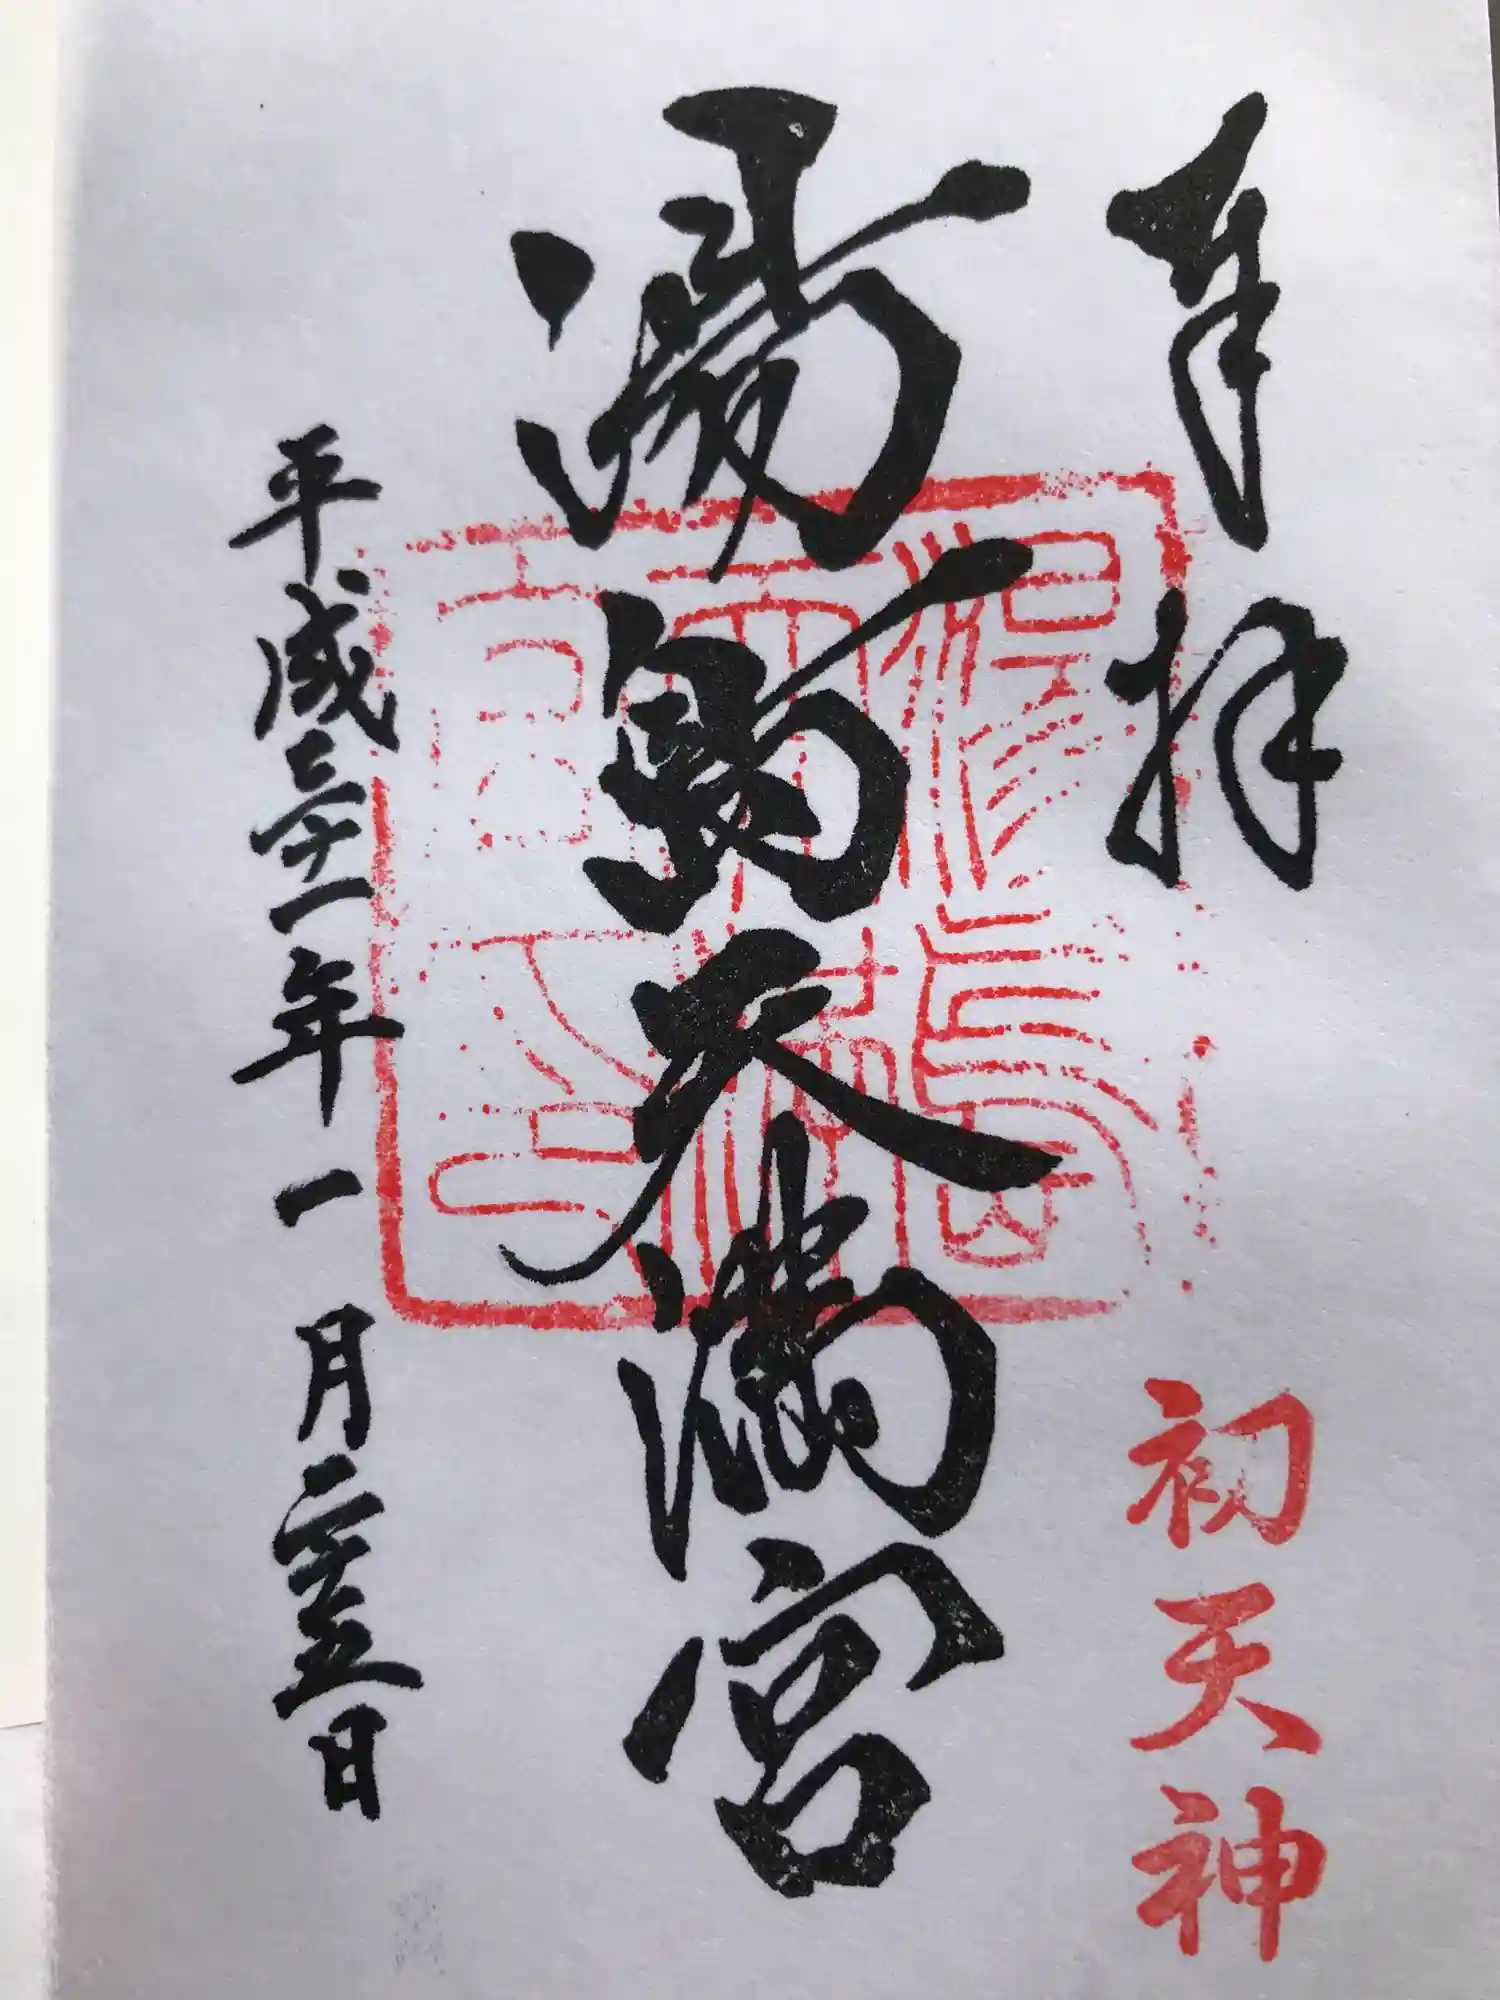 奉拝
初天神
湯島天満宮
平成三十一年一月二十五日